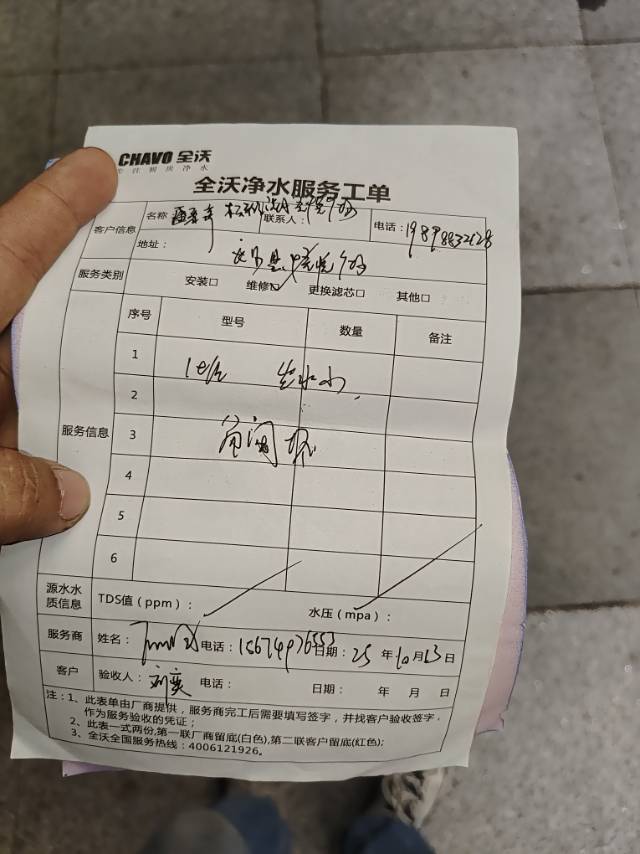 CHAVO 全沃
专注厨房净水
全沃净水服务工单
客户信息
名称
联系人:
电话: 19898832628
地址:
服务类别 安装□ 维修☑ 更换滤芯□ 其他□
服务信息
序号 型号 数量 备注
1
出水小
2
3 角阀坏
4
5
6
源水水质信息 TDS值(ppm): 水压(mpa):
服务商 姓名: 电话: 15674976553 日期: 25 年 10 月 13 日
客户 验收人: 电话: 日期: 年 月 日
注:1、此表单由厂商提供,服务商完工后需要填写签字,并找客户验收签字,
作为服务验收的凭证;
2、此表一式两份,第一联厂商留底(白色),第二联客户留底(红色);
3、全沃全国服务热线:4006121926。